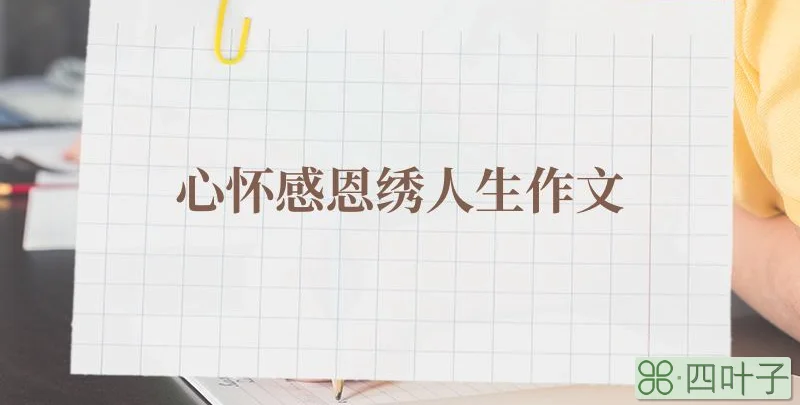 心怀感恩绣人生作文
四叶子